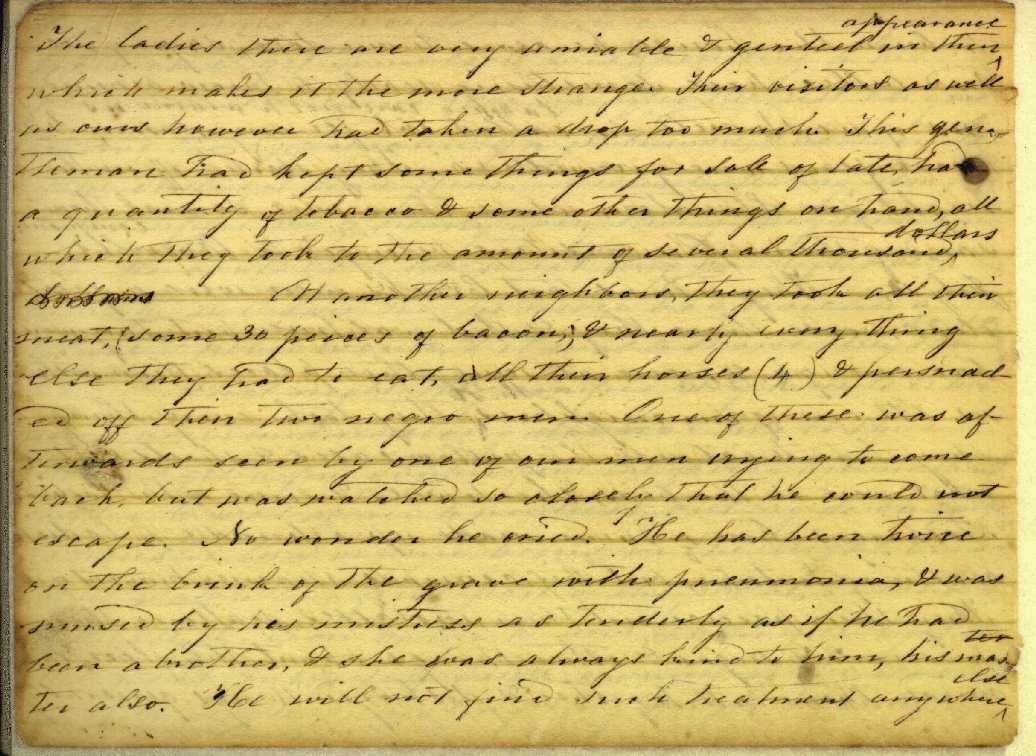 The ladies there are very amiable & genteel in their ^ appearance
which makes it the more strange. Their visitors as well
as ours however had taken a drop too much. This gen-
tleman had kept some things for sale of late, had
a quantity of tobacco & some other things on hand, all
which they took to the amount of several thousand, dollars
dollars At another neighbors, they took all their
meat, (some 30 peices of bacon,) & nearly every thing
else they had to eat, all their horses (4) & persuad-
ed off their two negro men. One of these was af-
terwards seen by one of our men crying to come
back, but was watched so closely that he could not
escape. No wonder he cried. He has been twice
on the brink of the grave with pneumonia, & was
nursed by his mistress as tenderly as if he had
been a brother, & she was always kind to him, his mas ter
ter also. He will not find such treatment anywhere ^ else